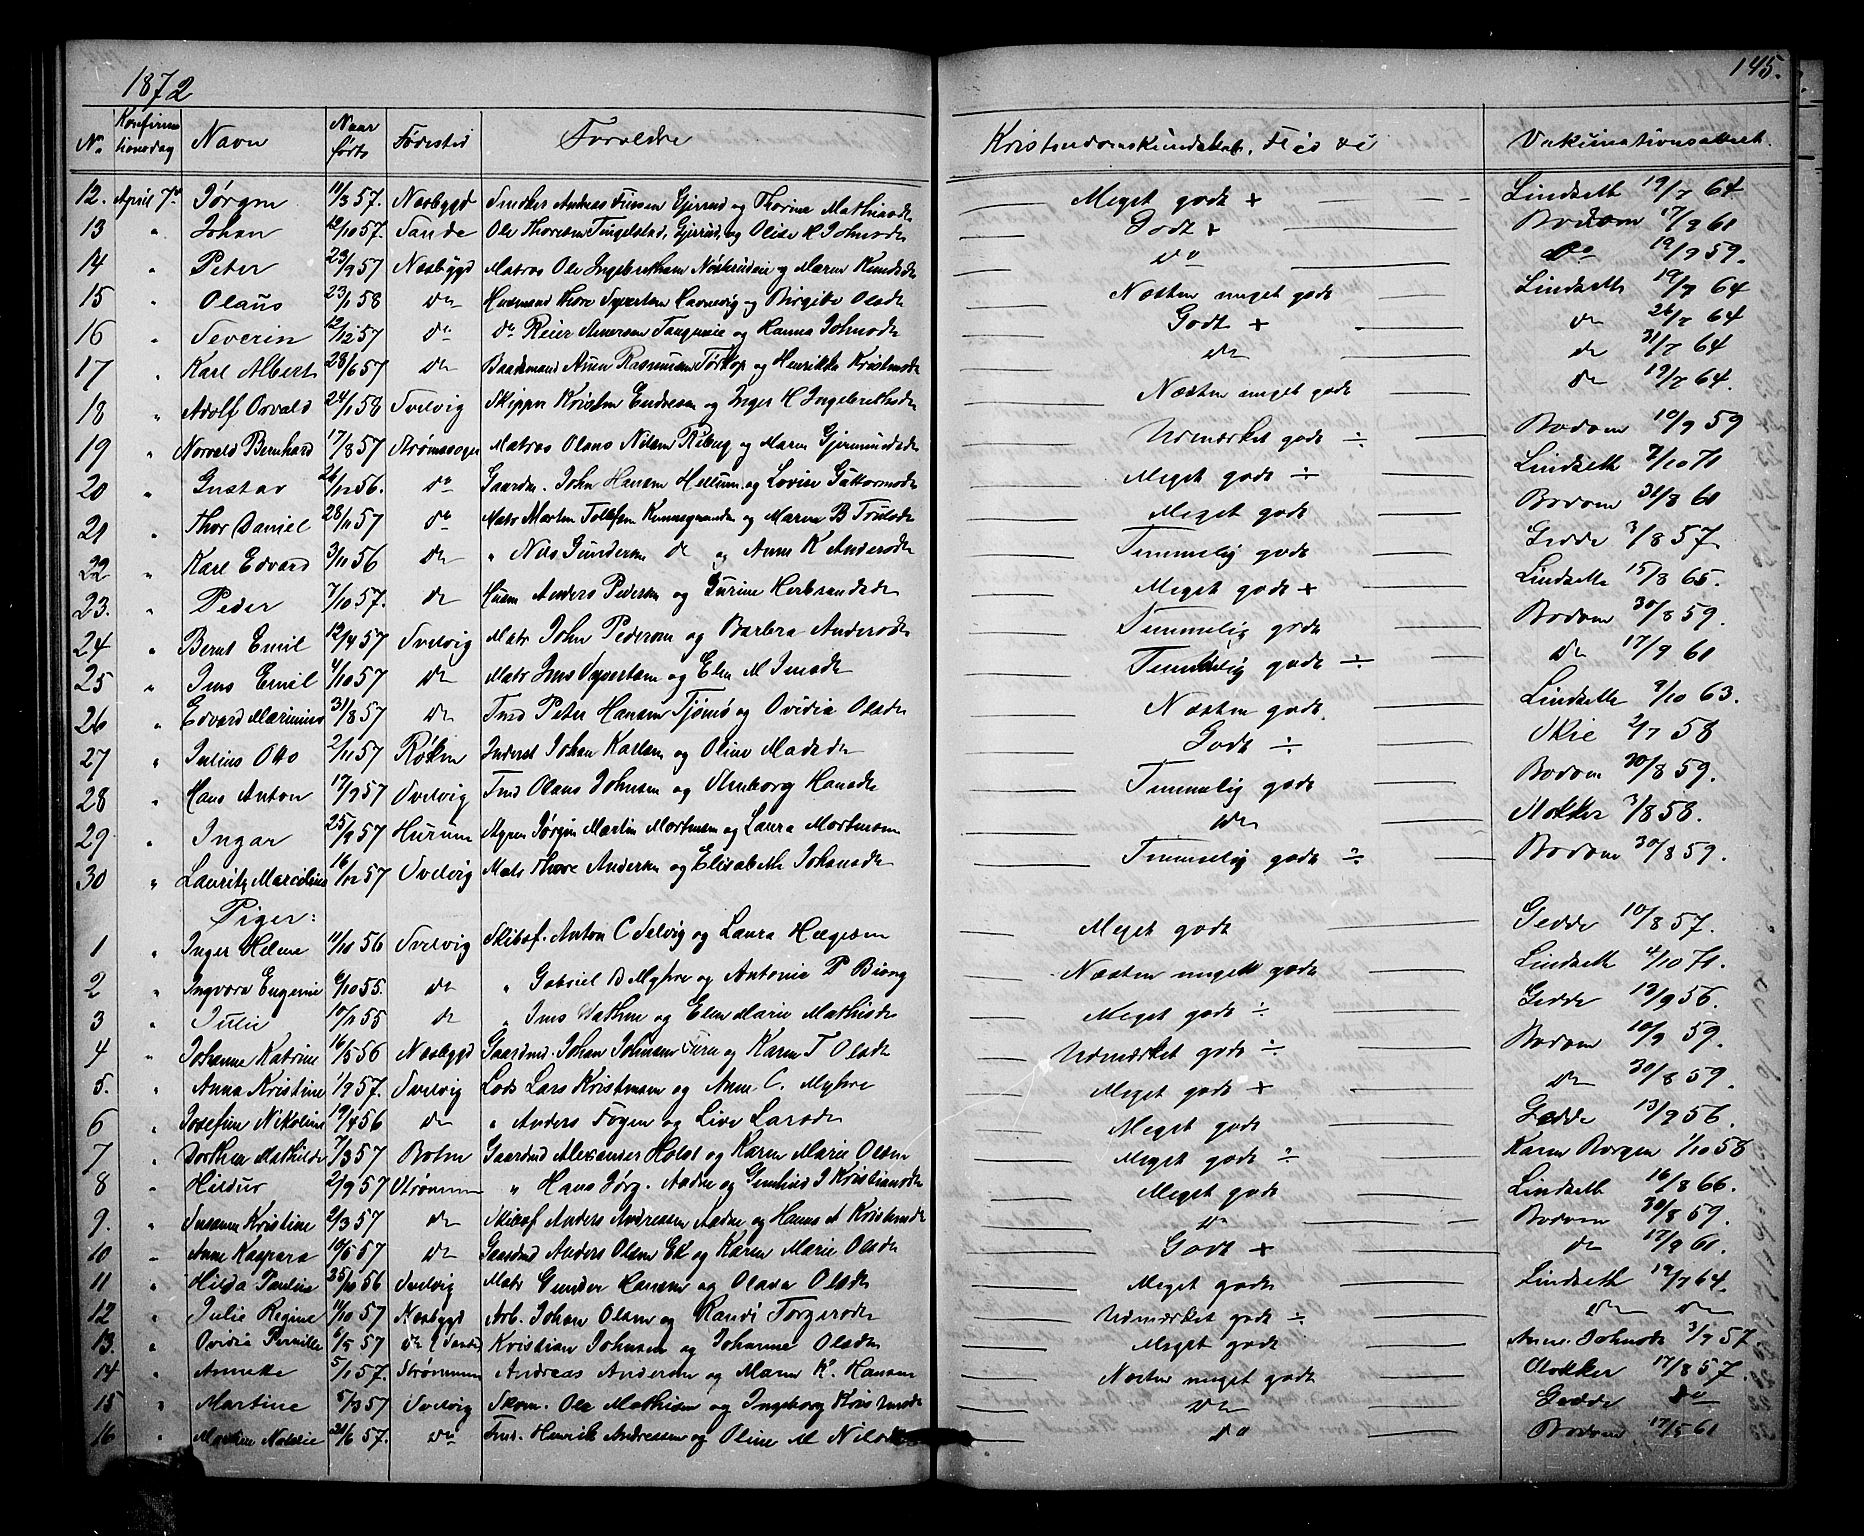 1872 145.
No. Konfirmationsdag Navn Naar født Fødested Forældre Kristendomskundskab, Flid Vakcinationsattest.
12. April 7de Jørgen 11/3 57. Næsbygd Andreas Gjerud og Thorine Mathisdr Meget godt + Lindseth 19/7 64
13 " Johan 12/10 57. Sande Ole Thoresen Tingelstad, Gjerud, og Olise H Johnsdr Godt + Bodom 17/9 61
14 " Peter 23/9 57 Næsbygd Matros Ole Ingebrethsen og Maren Knudsdr do do 19/9 59.
15 " Olaus 23/1 58 do Husmand Thore Syvertsen Havnevig og Birgitte Olsdr Næsten meget godt Lindseth 19/7 64
16 " Severin 12/12 57 do do Reier Amersen og Hanna Johnsdr Godt + do 26/7 64
17 " Karl Albert 28/6 57 do Baadsmand Rasmussen Tørkop og Henrikke Kristensdr do do 31/7 64
18 " Adolf Osvald 24/1 58 Svelvig Skipper Kristen Endresen og Inger H Ingebrethsdr Næsten meget godt do 19/7 64.
19 " Norvald Bernhard 17/8 57 Strømssoger Matros Olaus Nilsen Riberg og Maren Gjermundsdr Udmærket godt ÷ Bodom 10/9 59
20 " Gustav 26/12 56. do Gaardm. John Hansen Hellum og Lovise Guttormsdr Meget godt ÷ Lindseth 7/10 71
21 " Thor Daniel 28/11 57 do Matr Morten Tollefsen og Maren B Trulsdr Meget godt Bodom 31/8 61
22 " Karl Edvard 3/11 56 do " Nils Gundersen do og Anne K Andersdr Temmelig godt Gedde 3/8 57
23. " Peder 7/10 57. do Husm Anders Pedersen og Gurine Herbrandsdr Meget godt + Lindseth 15/8 65.
24 " Bernt Emil 12/4 57 Svelvig Matr John Pedersen og Barbra Andersdr Temmelig godt Bodom 30/8 59.
25 " Jens Emil 4/10 57 do Matr Jens Syvertsen og Elen M Jensdr Temmelig godt ÷ do 17/9 61
26 " Edvard Marinius 31/8 57 do Tmd Peter Hansen Tjømø og Ovidia Olsdr Næsten godt. Lindseth 9/10 63.
27 " Julius Otto 2/11 57 Røken Inderst Johan Karlsen og Oline Madsdr Godt ÷ Skie 2/7 58
28 " Hans Anton 17/9 57 Svelvig Tmd Olaus Johnsen og Hansdr Temmelig godt Bodom 30/8 59.
29 " Ingar 25/9 57 Hurum Jørgen Martin Mortensen og Laura Mortensen do Mokker 3/8 58.
30 " Lauritz Marcelius 16/12 57 Svelvig Matr Thore Andersen og Elisabeth Johansdr Temmelig godt ÷ Bodom 30/8 59.
Piger:
1 " Inger Helene 11/11 56 Svelvig Skibsf. Anton C Selvig og Laura Hægesen Meget godt Gedde 10/8 57.
2 " Ingvora Eugenie 6/10 55. do " Gabriel B Myhre og Antonie P Biong Næsten meget godt Lindseth 4/10 71.
3 " Julie 10/12 55 do " Jens og Elen Marie Mathisdr Meget godt ÷ Gedde 13/9 56.
4 " Johanne Katrine 16/5 56 Næsbygd Gaardmd. Johan Johnsen og Karen T Olsdr Udmærket godt ÷ Bodom 10/9 59.
5. " Anna Kristine 1/9 57. Svelvig Lods Lars Kristensen og Anne C. Myhre Meget godt + do 30/8 59.
6 " Josefine Nikoline 19/4 56 do " Anders Fogen og Live Larsdr Meget godt Gedde 13/9 56.
7 " Dorthea Mathilde 7/3 57 Gaardmd Alexander Holst og Karen Marie Olsen Meget godt ÷ Karen Borgen 1/10 58
8 " Hildur 2/9 57 Strømmen " Hans Jørg. Aadne og Gunhild J Kristiansdr Meget godt Lindseth 16/8 66.
9. " Susanne Kristine 2/3 57 do Skibsf Anders Andressen Aadne og Hanna A Kristensdr do Bodom 30/8 59.
10 " Anne Kaspara 10/5 57 do Gaardmd Anders Olsen Ek og Karen Marie Olsdr Godt + do 17/9 61.
11 " Hilda Pauline 25/10 56 Svelvig Matr Gunder Hansen og Olava Olsdr Meget godt Lindseth 19/7 64.
12 " Julie Regine 11/10 57 Næsbygd Arb. Johan Olsen og Randi Torgersdr Udmærket godt ÷ do do
13. " Ovidia Pernille 6/5 57 do Kristian Johnsen og Johanne Olsdr Meget godt Anne Johnsdr 3/9 57.
14 " Annette 5/1 57. Strømmen Andreas Andersen og Maren K. Hansen Næsten meget godt Mokker 17/8 57.
15 " Martine 5/3 57 Svelvig Skom. Ole Mathisen og Ingeborg Kristensdr do Gedde do
16 " Maren Nalvie 20/6 57. do Tmd. Henrik Andressen og Oline M Nilsdr do Bodom 17/5 61